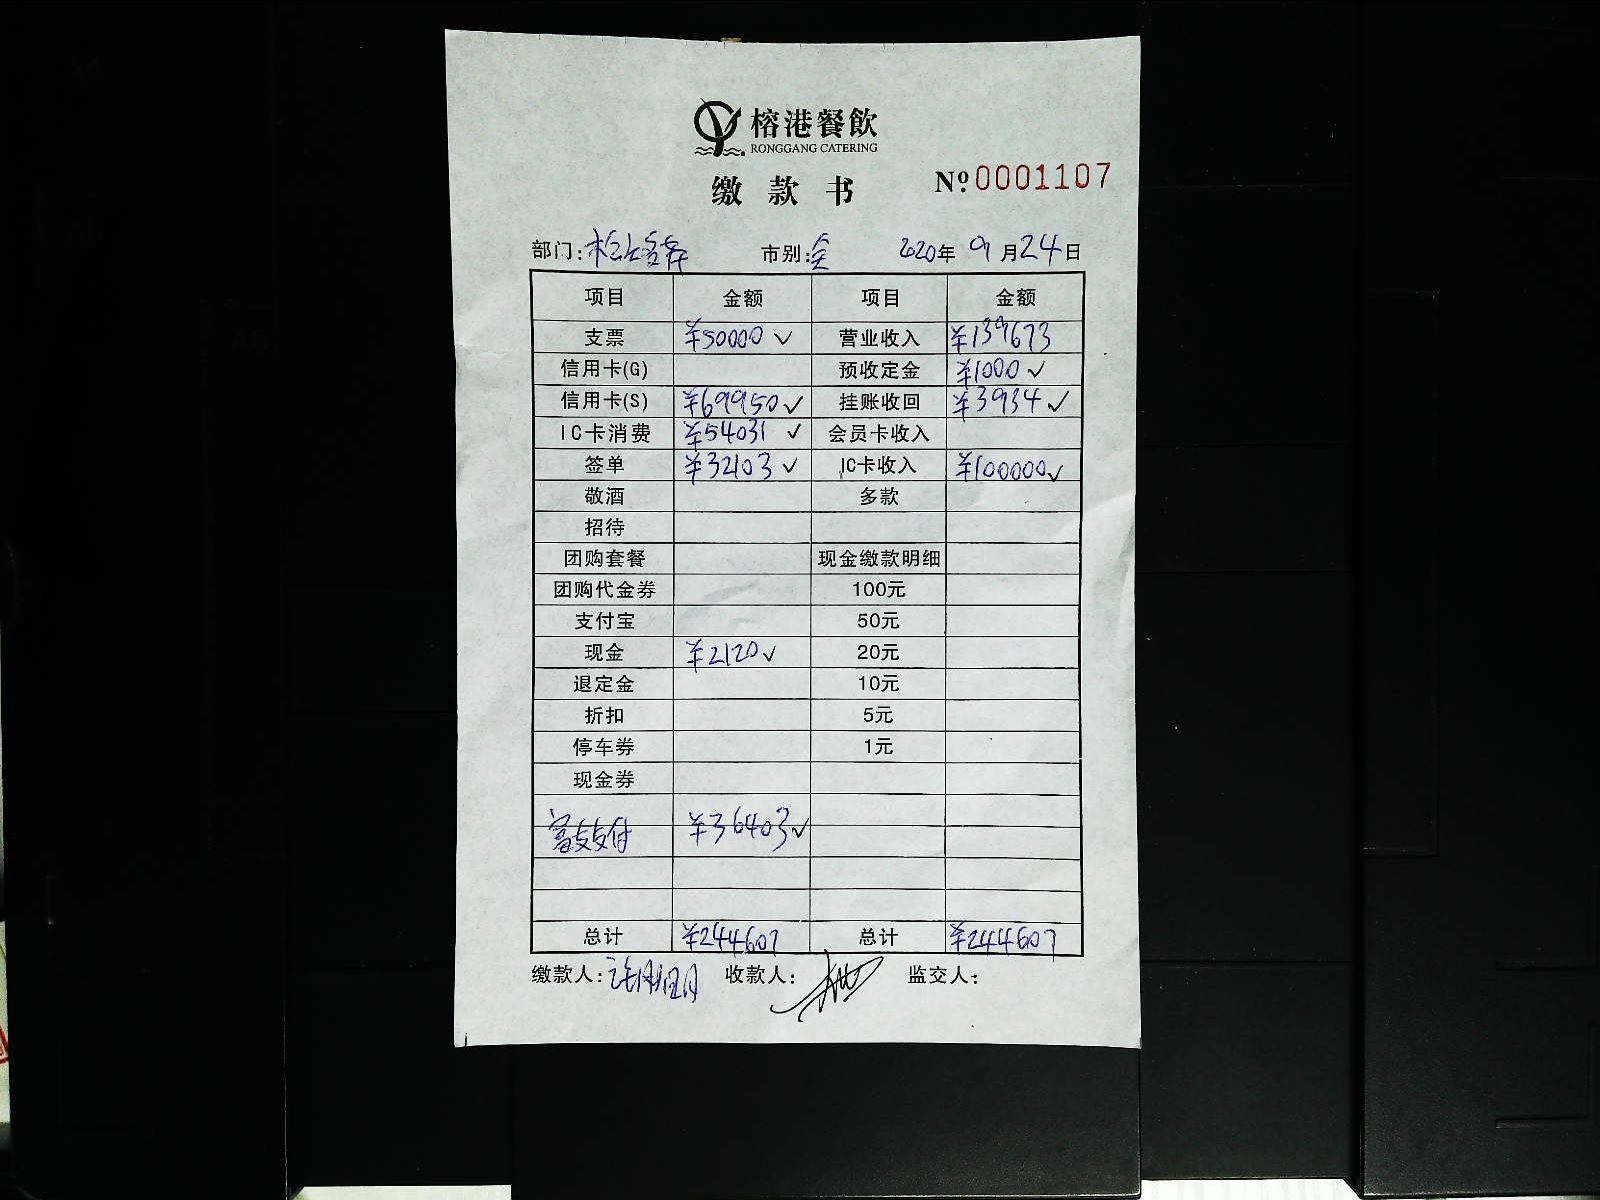 榕港餐飲
RONGGANG CATERING
缴款书 Nº 0001107
部门: 市别:全 2020年 9月24日
项目 金额 项目 金额
支票 ¥50000✓ 营业收入 ¥139673
信用卡(G) 预收定金 ¥1000✓
信用卡(S) ¥69950✓ 挂账收回 ¥3934✓
IC卡消费 ¥54031✓ 会员卡收入
签单 ¥32103✓ IC卡收入 ¥100000✓
敬酒 多款
招待
团购套餐 现金缴款明细
团购代金券 100元
支付宝 50元
现金 ¥2120✓ 20元
退定金 10元
折扣 5元
停车券 1元
现金券
支付 ¥36403✓
总计 ¥244607 总计 ¥244607
缴款人: 收款人: 监交人: